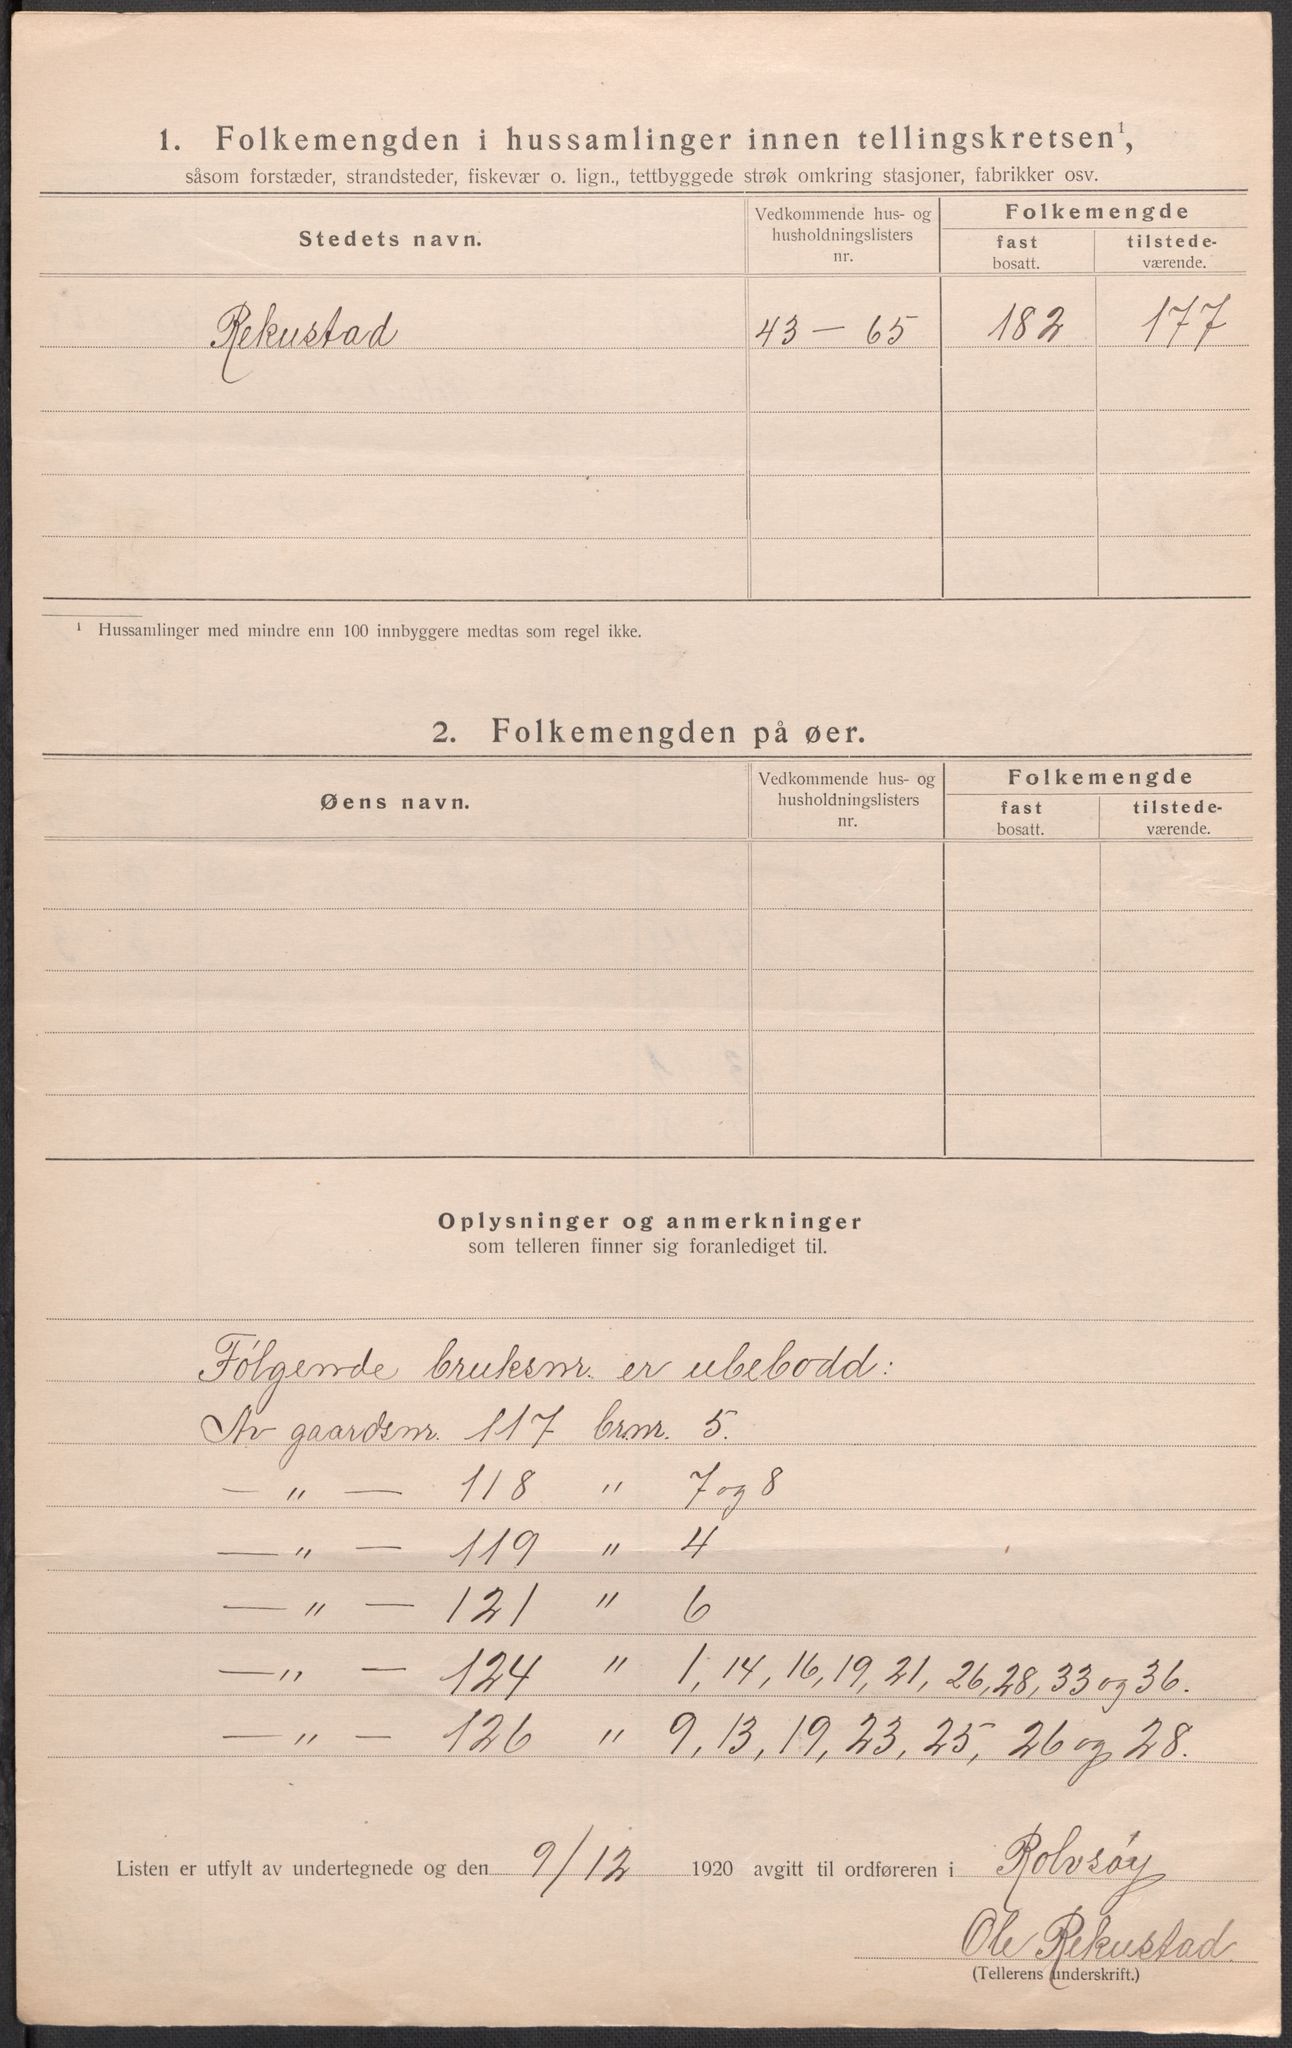 1. Folkemengden i hussamlinger innen tellingskretsen¹,
såsom forstæder, strandsteder, fiskevær o. lign., tettbyggede strøk omkring stasjoner, fabrikker osv.
Stedets navn.
Vedkommende hus- og
husholdningslisters
nr.
Folkemengde
fast
bosatt.
tilstede-
værende.
Rekustad 43 — 65 182 177
¹ Hussamlinger med mindre enn 100 innbyggere medtas som regel ikke.
2. Folkemengden på øer.
Øens navn.
Vedkommende hus- og
husholdningslisters
nr.
Folkemengde
fast
bosatt.
tilstede-
værende.
Oplysninger og anmerkninger
som telleren finner sig foranlediget til.
Følgende bruksnr. er ubebodd:
Av gaardsnr. 117 brnr. 5.
— " — 118 " 7 og 8
— " — 119 " 4
— " — 121 " 6
— " — 124 " 1, 14, 16, 19, 21, 26, 28, 33 og 36.
— " — 126 " 9, 13, 19, 23, 25, 26 og 28.
Listen er utfylt av undertegnede og den 9/12 1920 avgitt til ordføreren i Rolvsøy
Ole Rekustad
(Tellerens underskrift.)